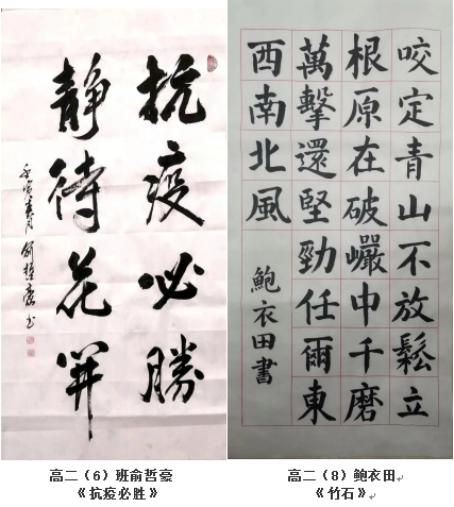 抗疫必勝
靜待花開
壬寅春月 俞哲豪书
咬定青山不放鬆立
根原在破巖中千磨
萬擊還堅勁任爾東
西南北風
鮑衣田書
高二（6）班俞哲豪
《抗疫必胜》
高二（8）鲍衣田
《竹石》